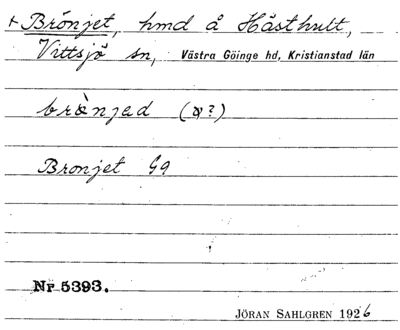 + Brónjet, hmd å Hästhult,
Vittsjö sn, Västra Göinge hd, Kristianstad län
brànjad (
Bronjet G9
Nr 5393.
JÖRAN SAHLGREN 1926